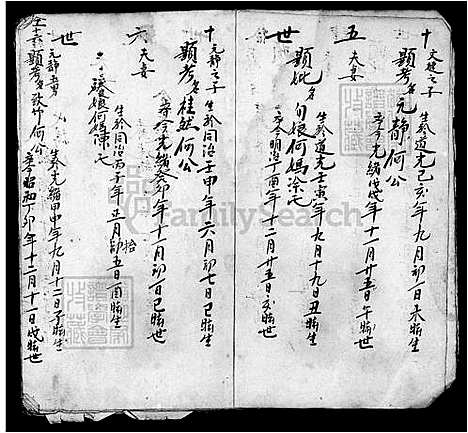 十
五
世
文建之子
夫妻
顯考名元靜何公
生於道光己亥年九月初一日未時生
卒今光緒戊戌年十一月廿五日午時世
顯妣名甸娘何媽涂氏
生於道光壬寅年九月十九日丑時生
卒今明治丁酉年十二月廿五日亥時世
十
六
世
元靜之子
夫妻
顯考名桂然何公
生於同治壬申年六月初七日巳時生
卒今光緒癸卯年十一月初一日巳時世
娘何媽陳氏
生於同治丙子年五月初拾五日酉時生
元靜
顯考名
何公
生於光緒甲申年九月十二日子時生
卒今昭和丁卯年十二月十一日戌時世
FamilySearch